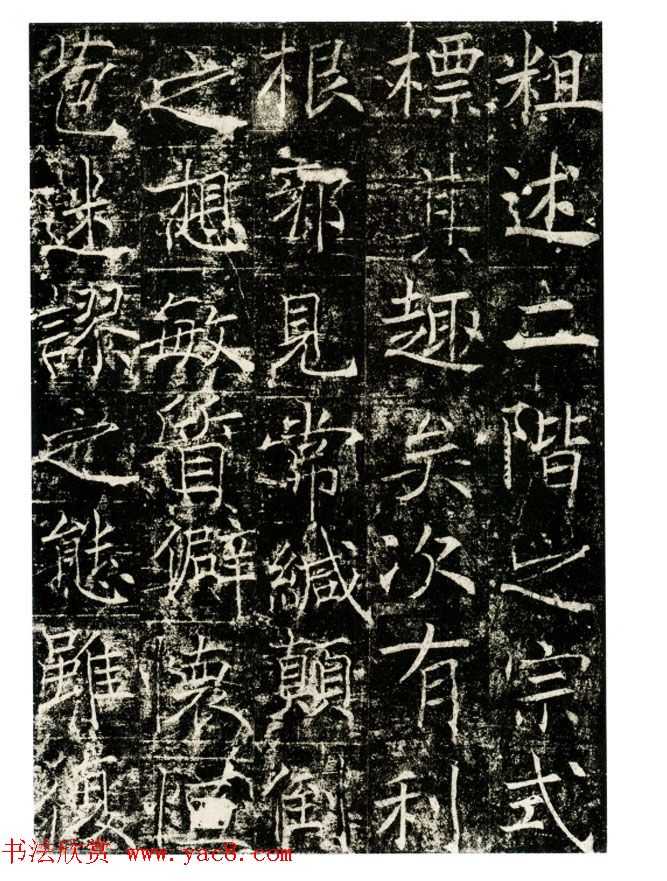 粗述二階之宗式
標其趣矣次有利
根邪見常緘顛倒
之想敏質僻懷恒
苞迷謬之態雖復
书法欣赏 www.yac8.com